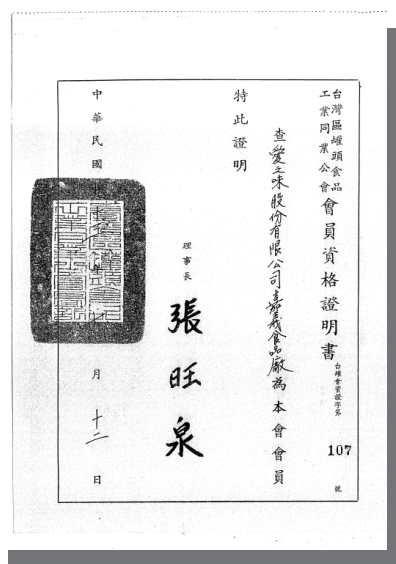 台灣區罐頭食品
工業同業公會
會員資格證明書
台罐會資證字第
107
號
查愛之味股份有限公司嘉義食品廠為本會會員
特此證明
理事長
張旺泉
中華民國
月十二日